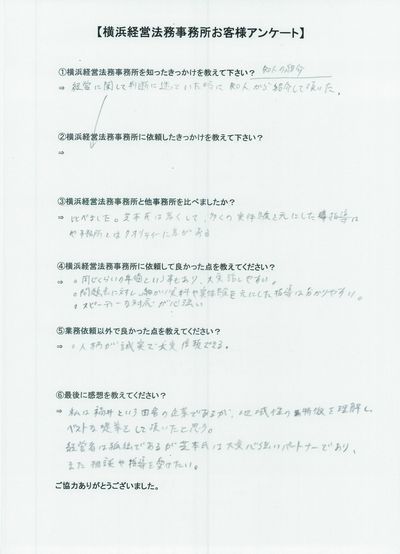 【横浜経営法務事務所お客様アンケート】
①横浜経営法務事務所を知ったきっかけを教えて下さい？ 知人の紹介
⇒ 経営に関して判断に迷っていた時に知人から紹介して頂いた。
②横浜経営法務事務所に依頼したきっかけを教えて下さい？
⇒
③横浜経営法務事務所と他事務所を比べましたか？
⇒ 比べました。芝本氏は若くして、多くの実体験を元にした指導は
や事務所とはクオリティーに差がある
④横浜経営法務事務所に依頼して良かった点を教えてください？
⇒ 。同じくらいの年齢という事もあり、大変話しやすい。
。問題点に対し、細かい資料や実体験を元にした指導は分かりやすい。
。スピーディーな対応が心強い
⑤業務依頼以外で良かった点を教えてください？
⇒ 。人柄が誠実で大変信頼できる。
⑥最後に感想を教えてください？
⇒ 私は福井という田舎の企業であるが、地域性の特徴を理解し、
ベストな提案をして頂いたと思う。
経営者は孤独であるが芝本氏は大変心強いパートナーであり、
また相談や指導を受けたい。
ご協力ありがとうございました。